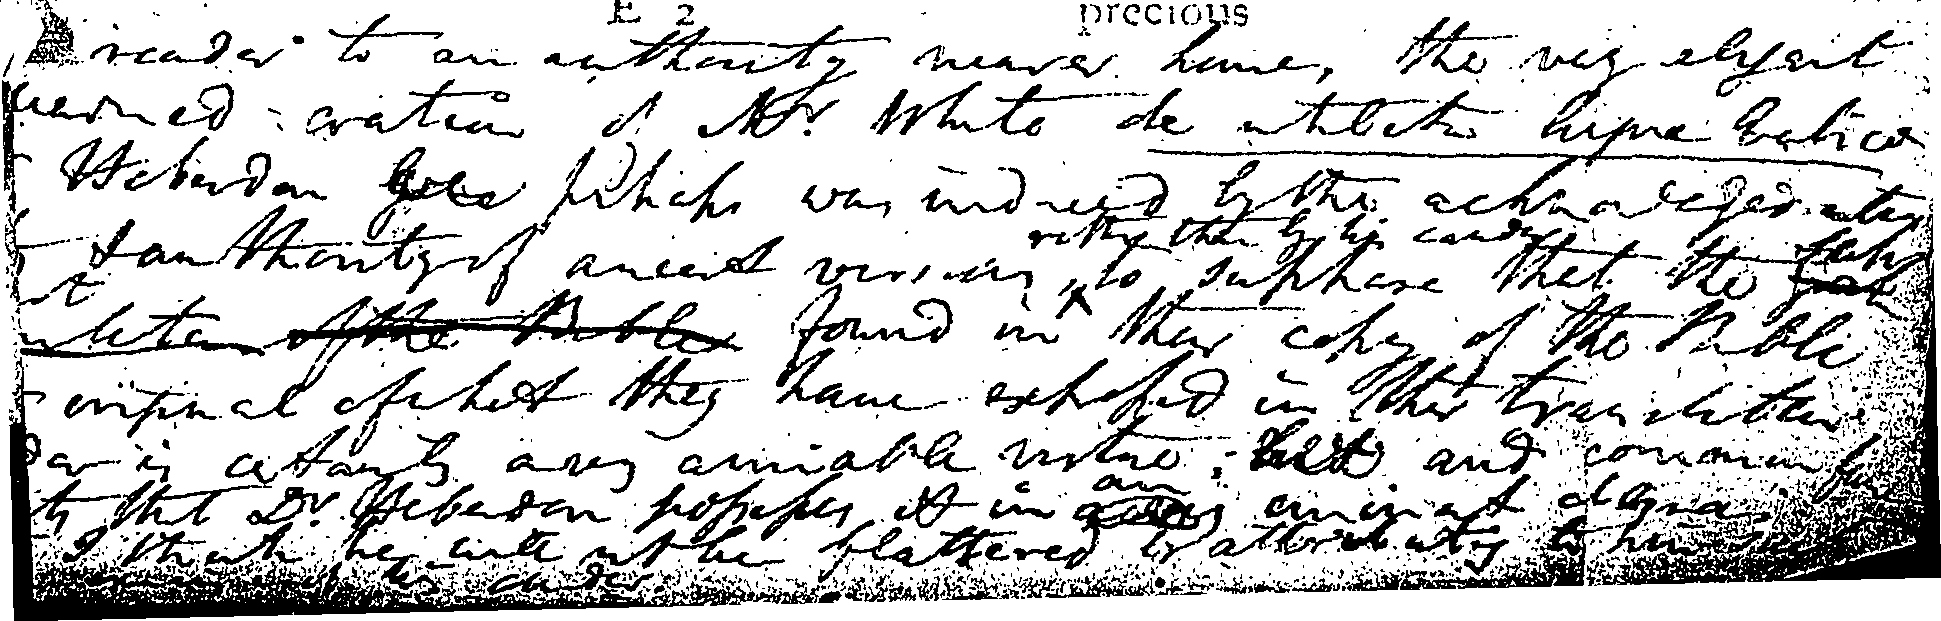 E 2 precious
reader to an authority nearer home, the very elegant
learned oration of Mr. White de utilitate linguæ Arabicæ
Heberden perhaps was induced by the acknowledged
rather than by his candor
& authority of ancient versions, to suppose that the
of the Bible found in their copy of the Bible
original of what they have expressed in their translation
is certainly a very amiable virtue; and common
that Dr. Heberden possesses it in an eminent degree
I think he will not be flattered by attributing to him such
of his candor.